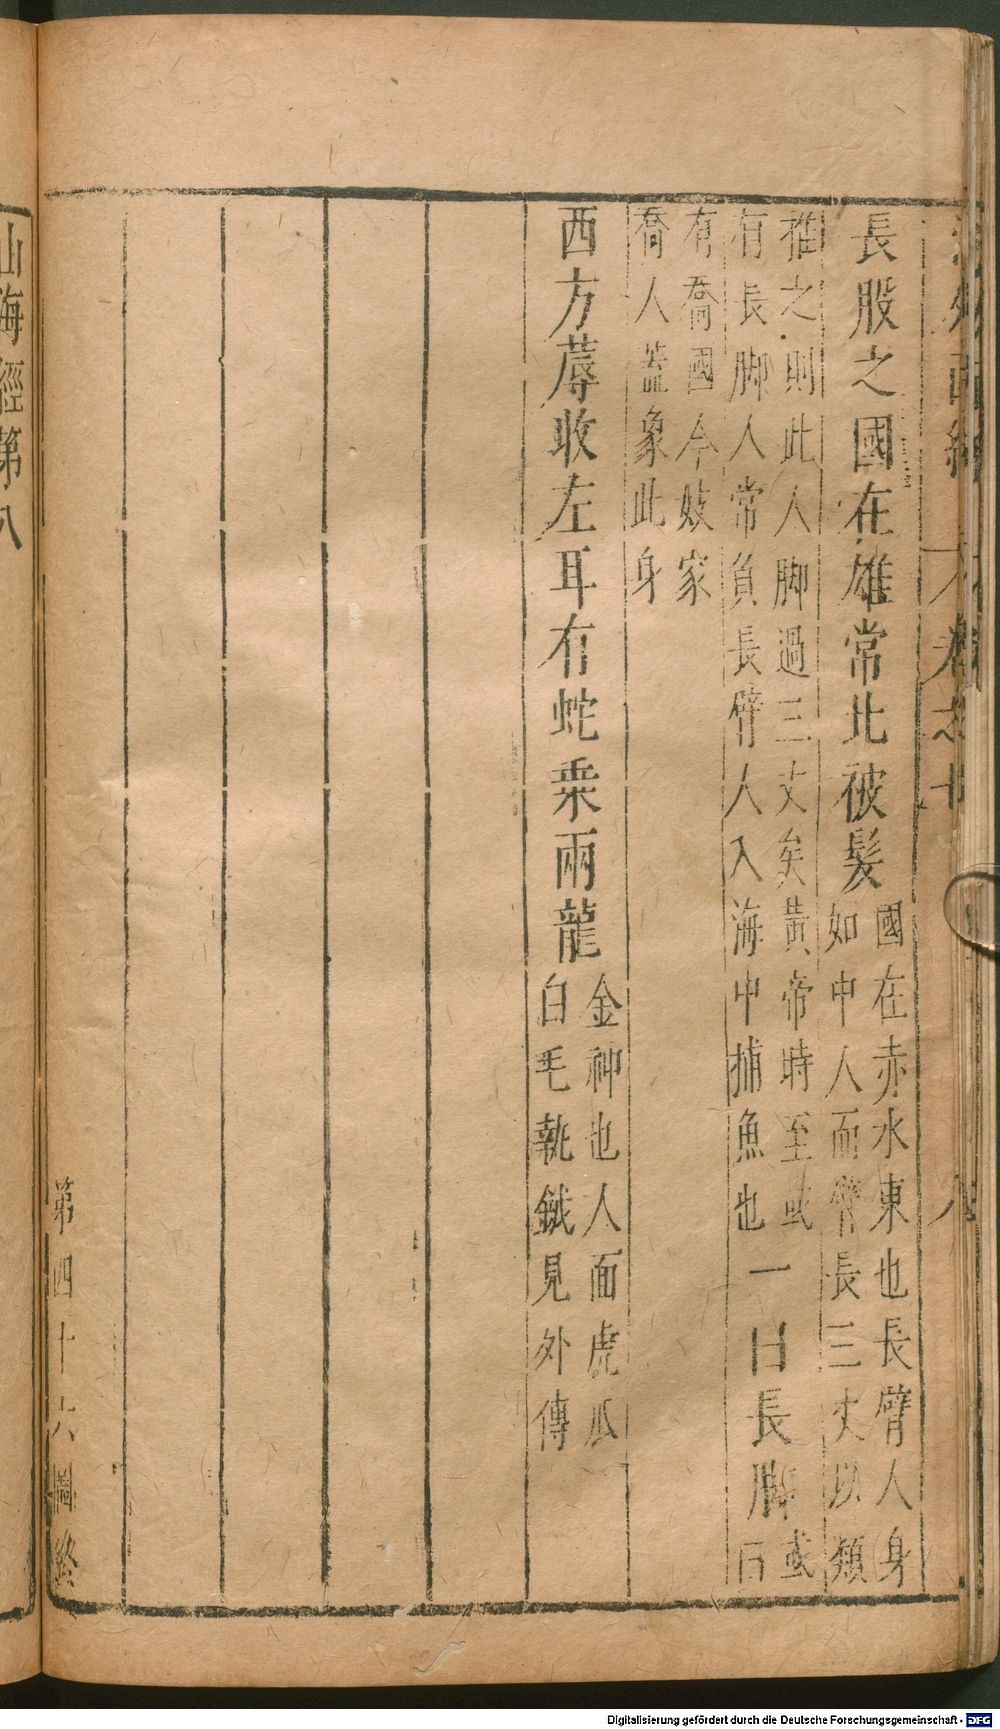 長股之國在雄常北被髮
國在赤水東也長臂人身
如中人而臂長三丈以類
推之則此人脚過三丈矣黃帝時至或
有長脚人常負長臂人入海中捕魚也
一曰長脚
或
曰
有喬國今妓家
喬人蓋象此身
西方蓐收左耳有蛇乘兩龍
金神也人面虎爪
白毛執鉞見外傳
第四十六圖終
山海經第八
Digitalisierung gefördert durch die Deutsche Forschungsgemeinschaft - DFG